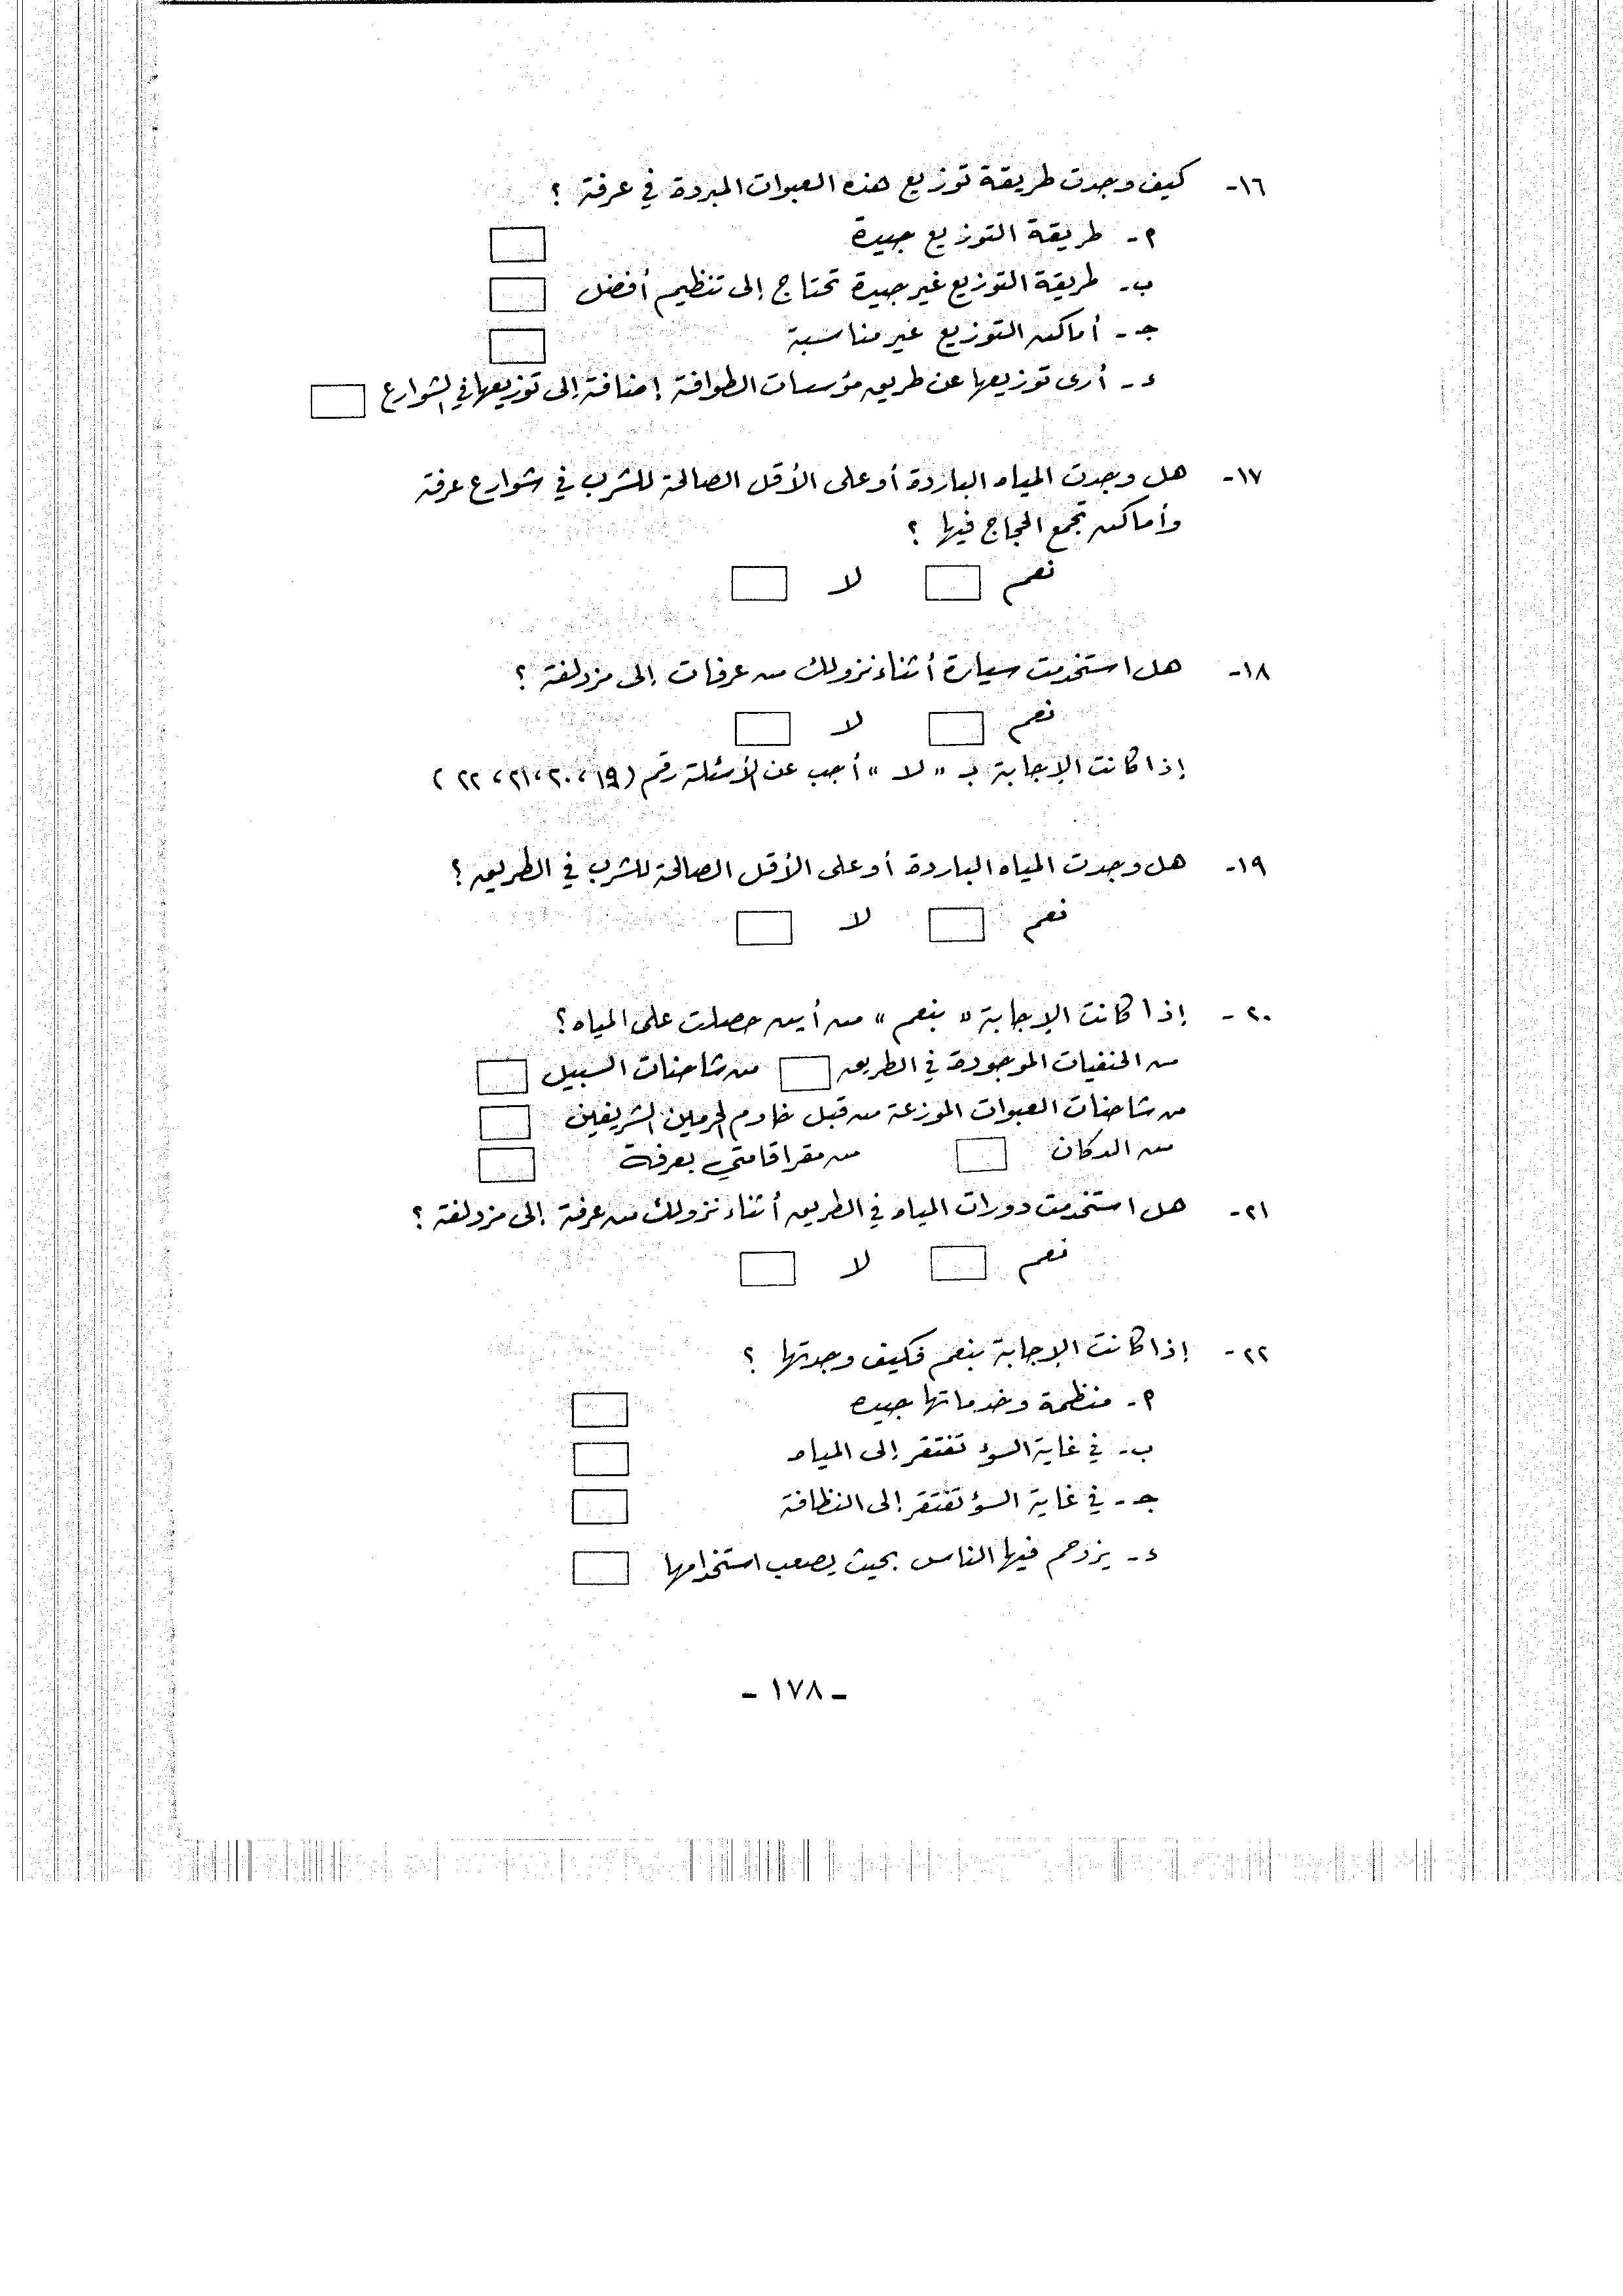 ١٦- كيف وجدت طريقة توزيع هذه العبوات المبردة في عرفة ؟
م - طريقة التوزيع جيدة
ب - طريقة التوزيع غير جيدة تحتاج إلى تنظيم أفضل
جـ - أماكن التوزيع غير مناسبة
د - أرى توزيعها عن طريق مؤسسات الطوافة إضافة إلى توزيعها في الشوارع
١٧- هل وجدت المياه الباردة أو على الأقل الصالحة للشرب في شوارع عرفة
وأماكن تجمع الحجاج فيها ؟
نعم لا
١٨- هل استخدمت سيارة أثناء نزولك من عرفات إلى مزدلفة ؟
نعم لا
إذا كانت الإجابة بـ " لا " أجب عن الأسئلة رقم (١٩، ٢٠، ٢١، ٢٢)
١٩- هل وجدت المياه الباردة أو على الأقل الصالحة للشرب في الطريق ؟
نعم لا
٢٠- إذا كانت الإجابة " بنعم " من أين حصلت على المياه ؟
من الحنفيات الموجودة في الطريق من شاحنات السبيل
من شاحنات العبوات الموزعة من قبل خادم الحرمين الشريفين
من الدكان من مقر اقامتي بعرفة
٢١- هل استخدمت دورات المياه في الطريق أثناء نزولك من عرفة إلى مزدلفة ؟
نعم لا
٢٢- إذا كانت الإجابة بنعم فكيف وجدتها ؟
م - منظمة وخدماتها جيده
ب - في غاية السوء تفتقر إلى المياه
جـ - في غاية السوء تفتقر إلى النظافة
د - يزدحم فيها الناس بحيث يصعب استخدامها
- ١٧٨ -